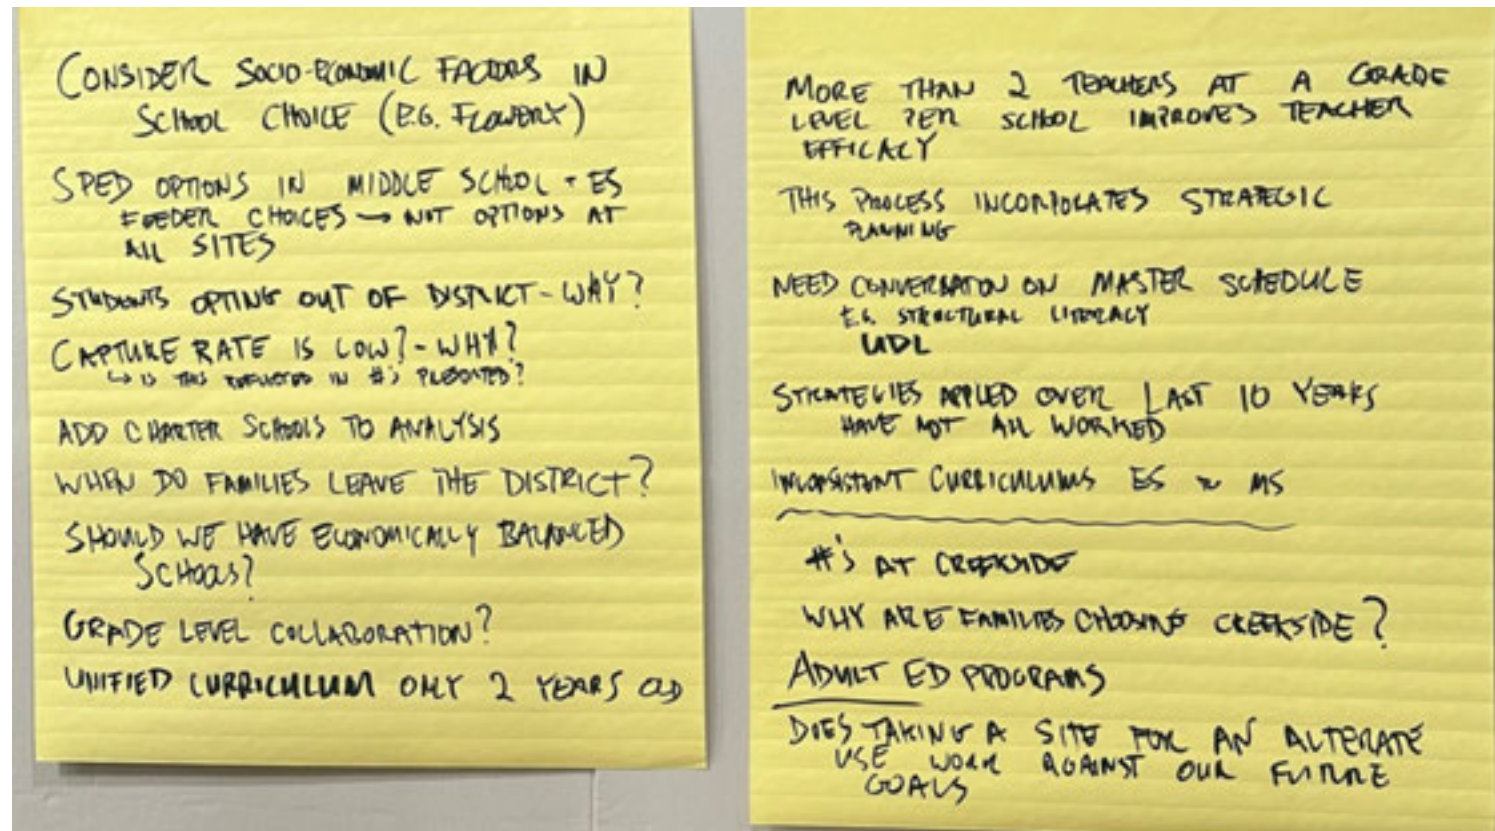 CONSIDER SOCIO-ECONOMIC FACTORS IN
SCHOOL CHOICE (E.G. FLOWERY)
SPED OPTIONS IN MIDDLE SCHOOL + ES
FEEDER CHOICES → NOT OPTIONS AT
ALL SITES
STUDENTS OPTING OUT OF DISTRICT - WHY?
CAPTURE RATE IS LOW? - WHY?
↳ IS THIS REFLECTED IN #'s PRESENTED?
ADD CHARTER SCHOOLS TO ANALYSIS
WHEN DO FAMILIES LEAVE THE DISTRICT?
SHOULD WE HAVE ECONOMICALLY BALANCED
SCHOOLS?
GRADE LEVEL COLLABORATION?
UNIFIED CURRICULUM ONLY 2 YEARS OLD
MORE THAN 2 TEACHERS AT A GRADE
LEVEL PER SCHOOL IMPROVES TEACHER
EFFICACY
THIS PROCESS INCORPORATES STRATEGIC
PLANNING
NEED CONVERSATION ON MASTER SCHEDULE
E.G. STRUCTURAL LITERACY
UDL
STRATEGIES APPLIED OVER LAST 10 YEARS
HAVE NOT ALL WORKED
INCONSISTENT CURRICULUMS ES ~ MS
#'s AT CREEKSIDE
WHY ARE FAMILIES CHOOSING CREEKSIDE?
ADULT ED PROGRAMS
DOES TAKING A SITE FOR AN ALTERATE
USE WORK AGAINST OUR FUTURE
GOALS